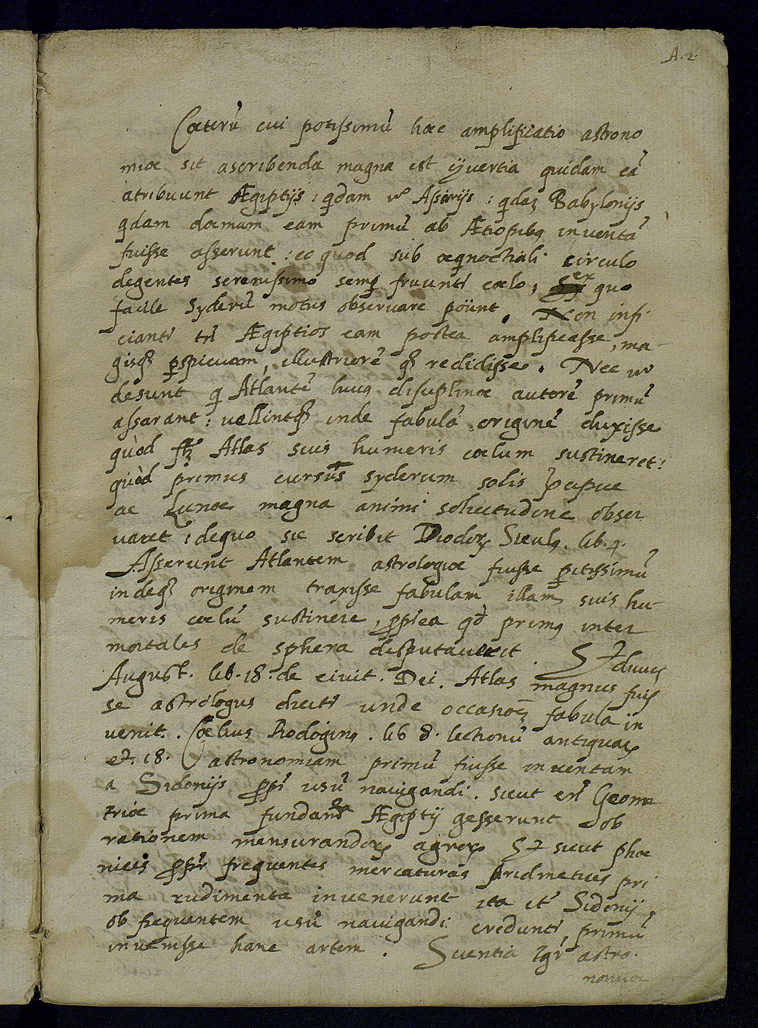 A. 2.
Cæterũ cui potissimũ hæc amplificatio astrono
miæ sit ascribenda magna est cõuertia quidam eã
atribuunt Ægiptijs : qdam vº Asirijs : qdaz Babylonijs
qdam demum eam primũ ab Ætiopibq inuentã
fuisse asserunt : eo quod sub æqnoctiali circulo
degentes serenissimo semp fruuntr cælo ; ex quo
facile syderũ motus obseruare põunt . Non infi-
ciantr tñ Ægiptios eam postea amplificasse, ma-
gisqz pspicuam, illustriorẽ qz redidisse. Nec vº
desunt q Atlantẽ huiq disciplinæ autorẽ primũ
assarant : vellintqz inde fabulã originẽ duxisse
quòd Atlas suis humeris cælum sustineret :
quòd primus cursũs syderum solis
ac Lunæ magna animi solicitudine obser
uaret : dequo sic scribit Diodorq Siculq . lib. 4.
Asserunt Atlantem astrologiæ fuisse peritissimũ
indeqz originem traxisse fabulam illam suis hu-
meris cælũ sustinere, pptea qd primq inter
mortales de sphera disputauerit . Et diuus
August. lib. 18. de ciuit. Dei. Atlas magnus fuis
se astrologus dicitr unde occasioẽ fabula in
uenit. Cœlius Rodoginq . lib 8. lectionũ antiquaꝝ
et. 18. astronomiam primũ fuisse inuentam
a Sidonijs ppr usũ nauigandi . sicut em̃ Geome
triæ prima fundamẽ Ægiptij gesserunt ob
rationem mensurandoꝝ agroꝝ Et sicut phæ
nices ppr frequentes mercaturas Aridmetices pri
ma rudimenta inuenerunt ita et Sidonij
ob frequentem usũ nauigandi creduntr primũ
inuenisse hanc artem . Scientia igr astro.
nomica